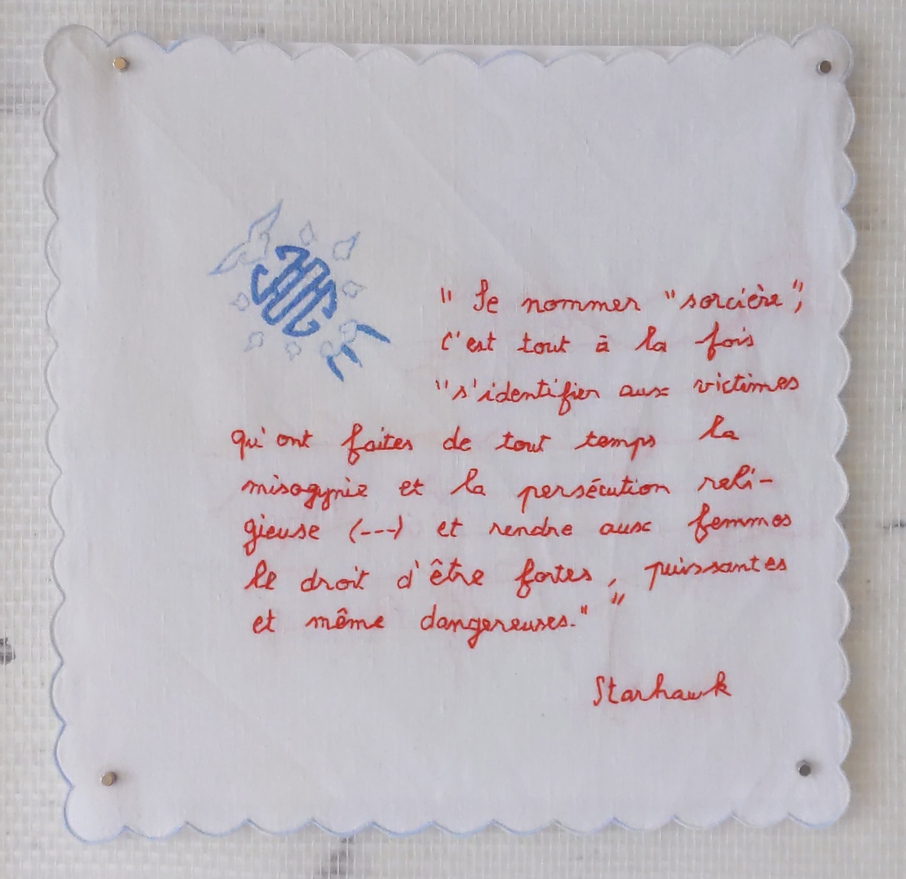 " Se nommer "sorcière",
c'est tout à la fois
"s'identifier aux victimes
qu'ont faites de tout temps la
misogynie et la persécution reli-
gieuse (---) et rendre aux femmes
le droit d'être fortes, puissantes
et même dangereuses." "
Starhawk